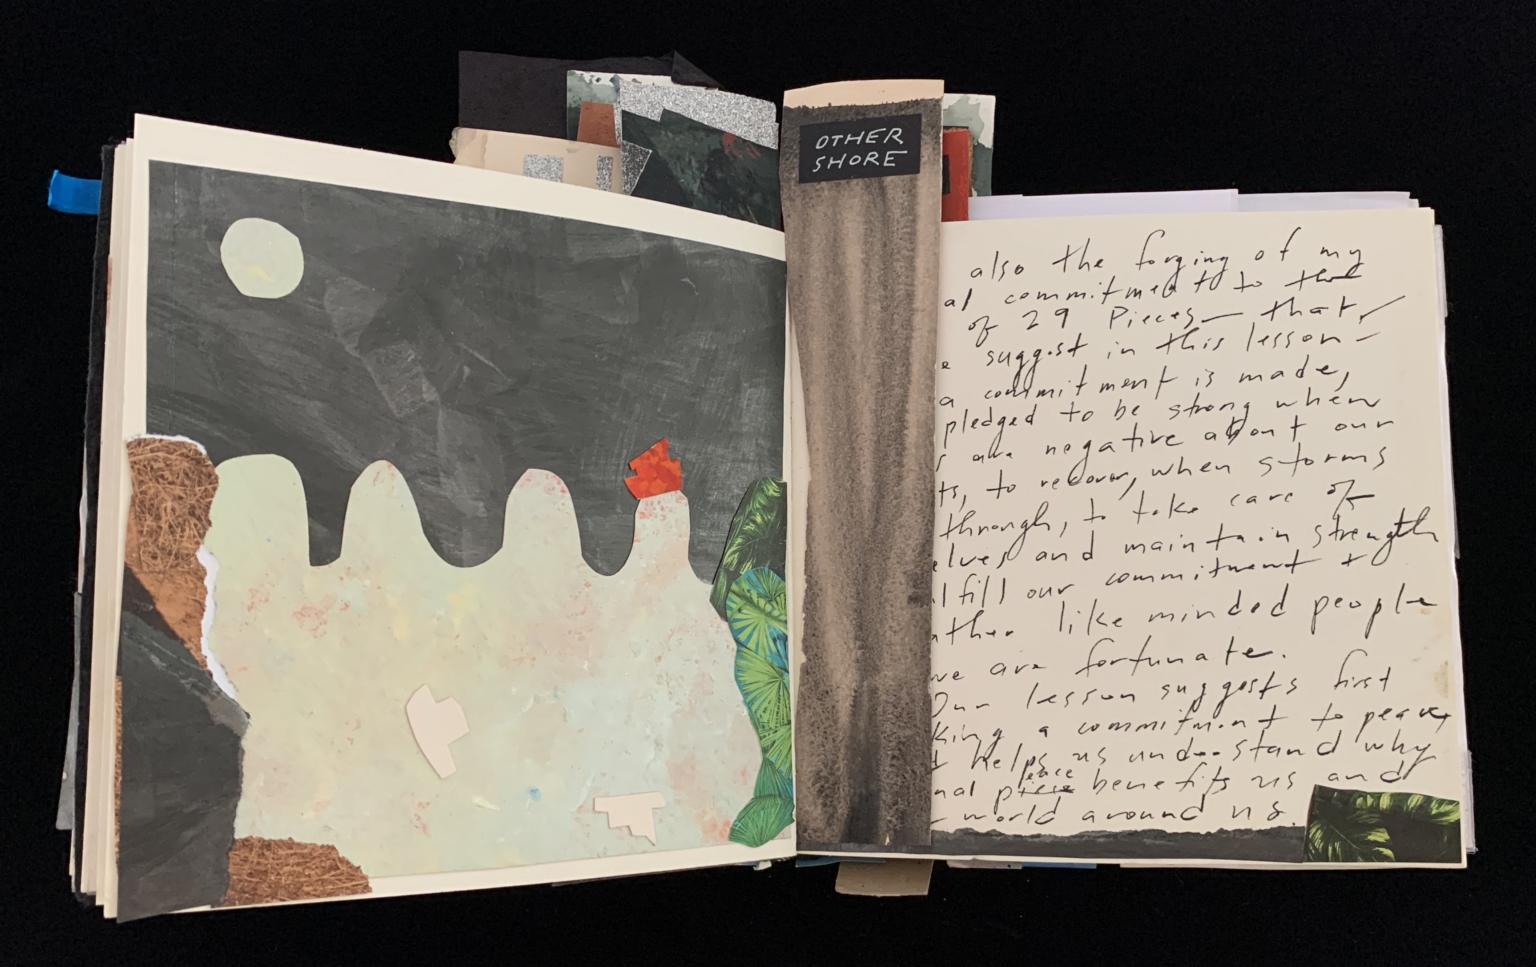 OTHER
SHORE
also the forging of my
al commitment to the
of 29 Pieces — that,
suggest in this lesson —
a commitment is made,
pledged to be strong when
are negative about our
ts, to recover, when storms
through, to take care of
elves and maintain strength
lfill our commitment +
other like minded people
we are fortunate.
Our lesson suggests first
king a commitment to peace,
helps us understand why
peace
nal piece benefits us and
world around us.